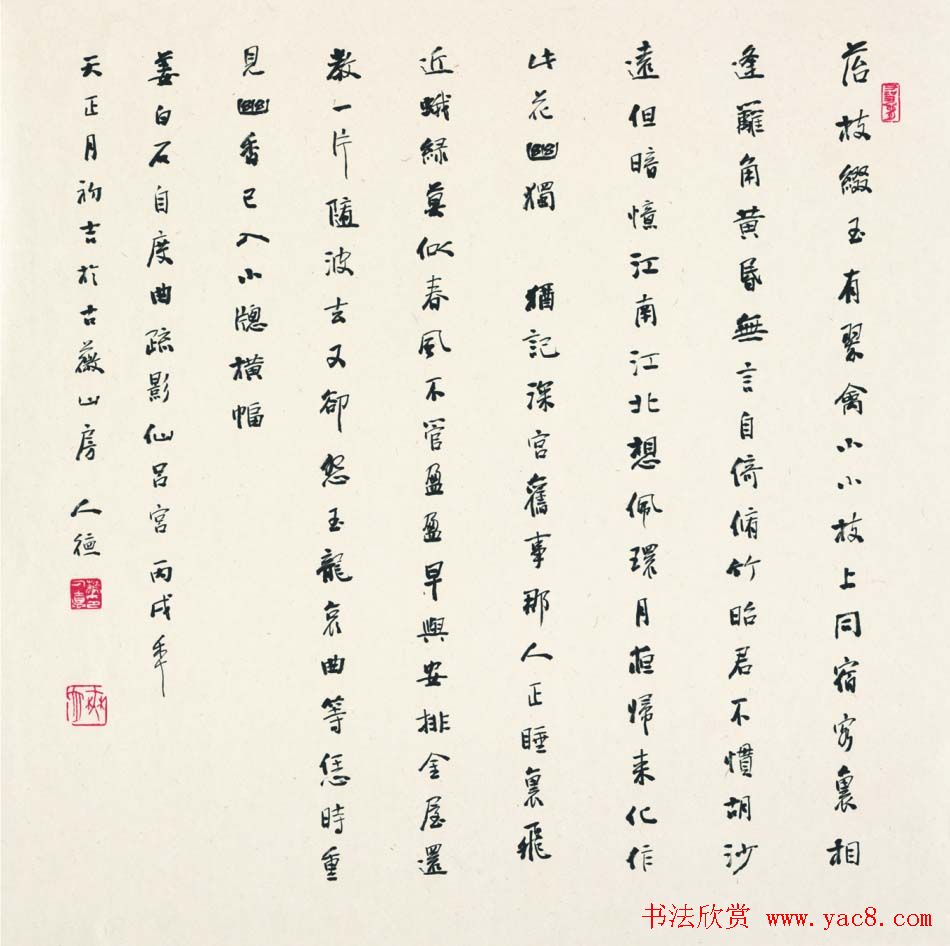 苔枝綴玉有翠禽小小枝上同宿客裏相
逢籬角黃昏無言自倚脩竹昭君不慣胡沙
遠但暗憶江南江北想佩環月夜歸來化作
此花幽獨 猶記深宮舊事那人正睡裏飛
近蛾綠莫似春風不管盈盈早與安排金屋還
教一片隨波去又卻怨玉龍哀曲等恁時重
見幽香已入小牕橫幅
姜白石自度曲疏影仙呂宮 丙戌年
天正月初吉於古薇山房 人德
书法欣赏 www.yac8.com